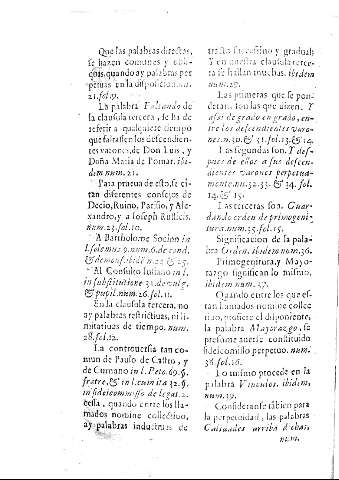 Que las palabras directas,
se hazen comunes y obli-
quas, quando ay palabras per
petuas en la disposicion. num.
21. fol. 9.
La palabra Faltando de
la clausula tercera, se ha de
referir a qualquiere tiempo
que faltassen los descendien-
tes varones, de Don Luis, y
Doña Maria de Pomar. ibi-
dem num. 21.
Para prueua de esto, se ci-
tan diferentes consejos de
Decio, Ruino, Pariso, y Ale-
xandro, y a Ioseph Rusticis.
num. 23. fol. 10.
A Bartholome Socion in
l. si demonf. ibid. n. 22 & 25.
Al Consulto Iuliano in l.
in substitutione 31. de vulg.
& pupil. num. 26. fol. 11.
En la clausula tercera, no
ay palabras restrictiuas, ni li-
mitatiues de tiempo. num.
28. fol. 12.
La controuersia tan co-
mun de Paulo de Castro, y
de Cumano in l. Peto. 69. §.
fratre, & in l. cum ita 32. §.
in fideicommisso de legat. 2.
cessa, quando entre los lla-
mados nomine collectiuo,
ay palabras induciuas de
tracto sucessiuo, y gradual.
Y en nuestra clausula terce-
ra se hallan muchas. ibidem
num. 29.
Las primeras que se pon-
deran, son las que dizen. Y
assi de grado en grado, en-
tre los descendientes varo-
nes. n. 30. & 31. fol. 13. & 14.
Las segundas son. Y des-
pues de ellos a sus descen-
dientes varones perpetua-
mente. nu. 32. 33. & 34. fol.
14. & 15.
Las terceras son. Guar-
dando orden de primogeni-
tura. num. 35. fol. 15.
Significacion de la pala-
bra Orden. ibidem num. 36.
Primogenitura, y Mayo-
razgo significan lo mismo,
ibidem num. 37.
Quando entre los que es-
tan llamados nomine collec-
tiuo, profiere el disponiente,
la palabra Mayorazgo, se
presume auerse constituido
fideicomisso perpetuo. num.
38. fol. 16.
Lo mismo procede en la
palabra Vinculos. ibidem,
num. 39.
Consideranse tãbien para
la perpetuidad, las palabras
Calidades arriba dichas,
num.